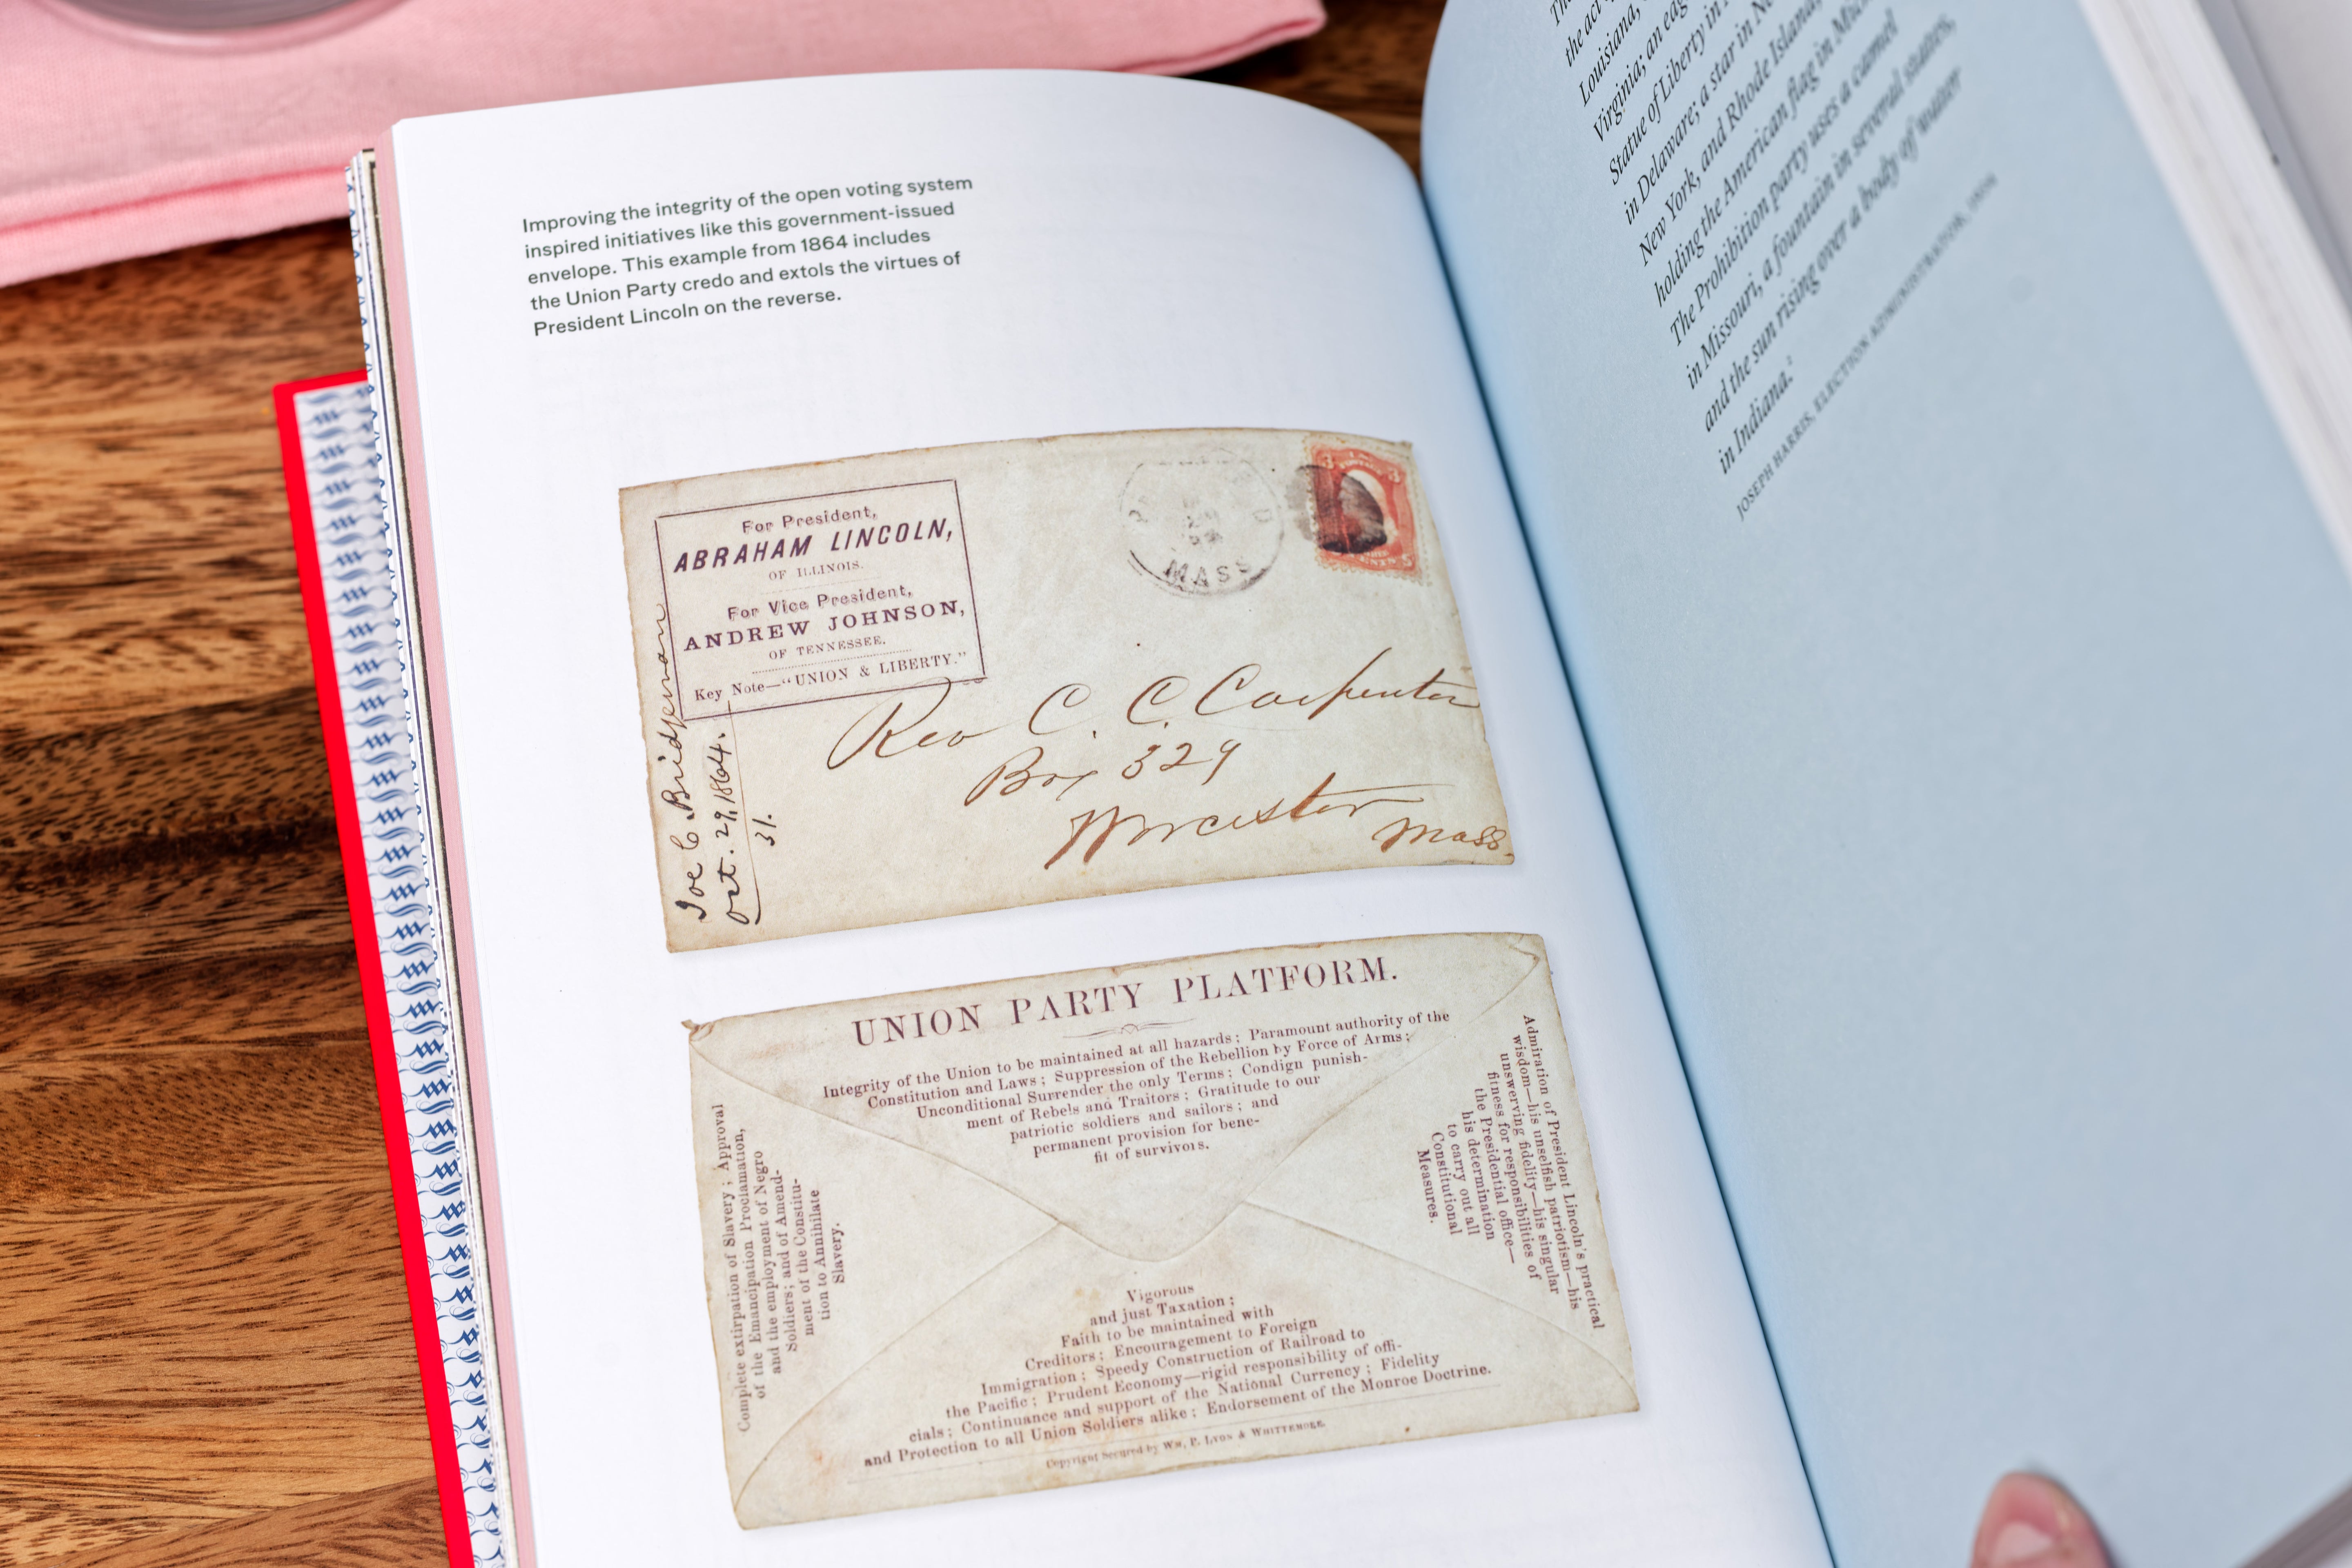 Improving the integrity of the open voting system
inspired initiatives like this government-issued
envelope. This example from 1864 includes
the Union Party credo and extols the virtues of
President Lincoln on the reverse.
For President,
ABRAHAM LINCOLN,
OF ILLINOIS.
For Vice President,
ANDREW JOHNSON,
OF TENNESSEE.
Key Note—"UNION & LIBERTY."
MASS
3 3
Rev C. C. Carpenter
Box 329
Worcester
Mass.
Joe C. Bridgeman
Oct. 29, 1864.
31.
UNION PARTY PLATFORM.
Integrity of the Union to be maintained at all hazards; Paramount authority of the
Constitution and Laws; Suppression of the Rebellion by Force of Arms;
Unconditional Surrender the only Terms; Condign punish-
ment of Rebels and Traitors; Gratitude to our
patriotic soldiers and sailors; and
permanent provision for bene-
fit of survivors.
Complete extirpation of Slavery; Approval
of the Emancipation Proclamation,
and the employment of Negro
Soldiers; and of Amend-
ment of the Constitu-
tion to Annihilate
Slavery.
Admiration of President Lincoln's practical
wisdom—his unselfish patriotism—his
unswerving fidelity—his singular
fitness for responsibilities of
the Presidential office—
his determination
to carry out all
Constitutional
Measures.
Vigorous
and just Taxation;
Faith to be maintained with
Creditors; Encouragement to Foreign
Immigration; Speedy Construction of Railroad to
the Pacific; Prudent Economy—rigid responsibility of offi-
cials; Continuance and support of the National Currency; Fidelity
and Protection to all Union Soldiers alike; Endorsement of the Monroe Doctrine.
Copyright Secured by WM. P. LYON & WHITTEMORE.
the act
Louisiana,
Virginia; an eag
Statue of Liberty in
in Delaware; a star in Ne
New York, and Rhode Island,
holding the American flag in Mich
The Prohibition party uses a camel
in Missouri, a fountain in several states,
and the sun rising over a body of water
in Indiana.
JOSEPH HARRIS, ELECTION ADMINISTRATION,